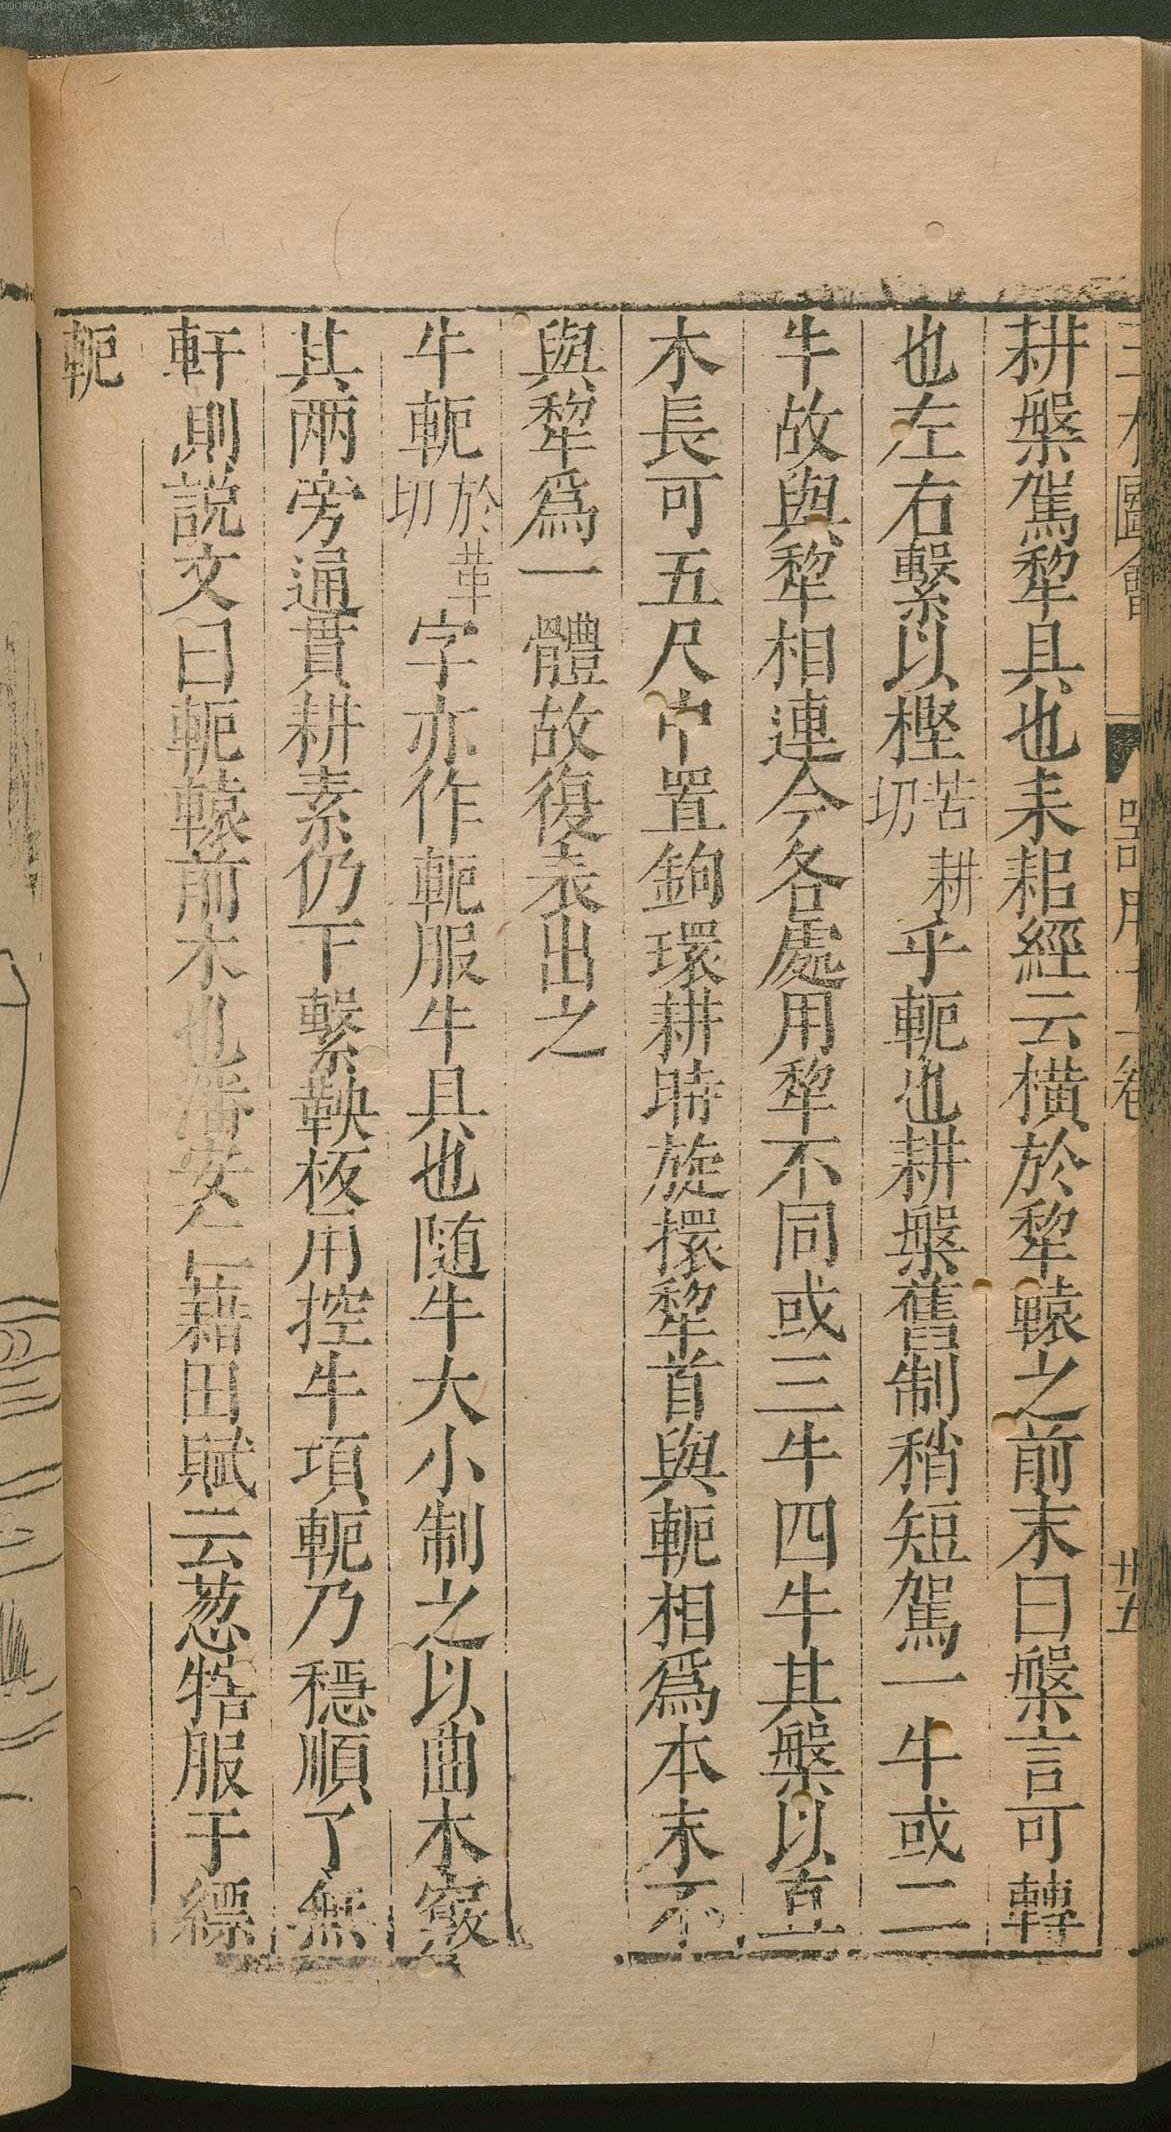 耕槃駕犂具也耒耜經云橫於犂轅之前末曰槃言可轉
也左右繫以樫苦耕切乎軛也耕槃舊制稍短駕一牛或二
牛故與犂相連今各處用犂不同或三牛四牛其槃以直
木長可五尺中置鉤環耕時旋擐犂首與軛相爲本末不
與犂爲一體故復表出之
牛軛於革切字亦作軶服牛具也隨牛大小制之以曲木竅
其兩旁通貫耕素仍下繫鞅板用控牛項軛乃穩順了無
軒側說文曰軛轅前木也潘安仁藉田賦云葱犗服于縹
軛